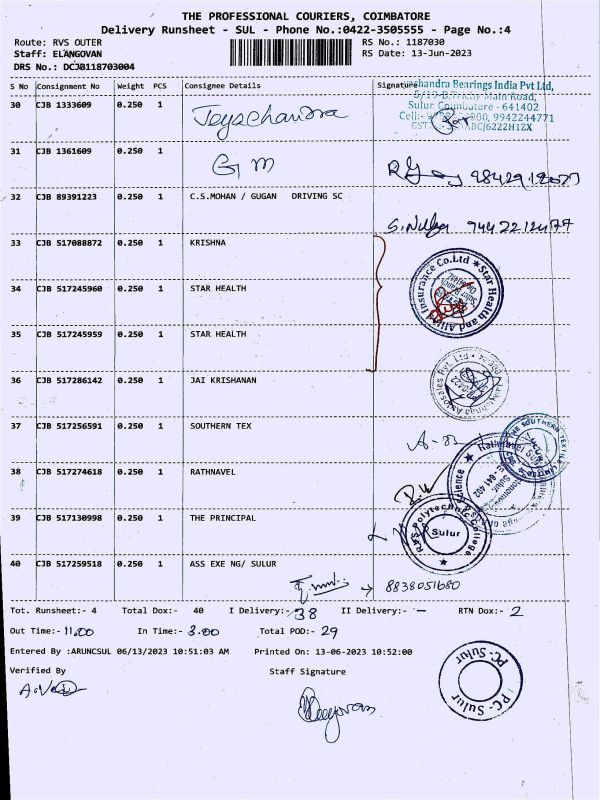 THE PROFESSIONAL COURIERS, COIMBATORE
Delivery Runsheet - SUL - Phone No.:0422-3505555 - Page No.:4
Route: RVS OUTER RS No.: 1187030
Staff: ELANGOVAN RS Date: 13-Jun-2023
DRS No.: DCJB118703004
S No Consignment No Weight PCS Consignee Details Signature
chandra Bearings India Pvt Ltd,
Main Road,
30 CJB 1333609 0.250 1 Jeyachandra
Sulur Coimbatore - 641402
9942244771
31 CJB 1361609 0.250 1 G M
32 CJB 89391223 0.250 1 C.S.MOHAN / GUGAN DRIVING SC
33 CJB 517088872 0.250 1 KRISHNA
34 CJB 517245960 0.250 1 STAR HEALTH
Star Health and Allied Insurance Co.Ltd
35 CJB 517245959 0.250 1 STAR HEALTH
36 CJB 517286142 0.250 1 JAI KRISHANAN
37 CJB 517256591 0.250 1 SOUTHERN TEX
38 CJB 517274618 0.250 1 RATHNAVEL
39 CJB 517130998 0.250 1 THE PRINCIPAL
RVS Polytechnic College
Sulur
40 CJB 517259518 0.250 1 ASS EXE NG/ SULUR
8838051680
Tot. Runsheet:- 4 Total Dox:- 40 I Delivery:- 38 II Delivery:- - RTN Dox:- 2
Out Time:- 11.00 In Time:- 3.00 Total POD:- 29
Entered By :ARUNCSUL 06/13/2023 10:51:03 AM Printed On: 13-06-2023 10:52:00
Verified By Staff Signature
PC-Sulur
PC-Sulur